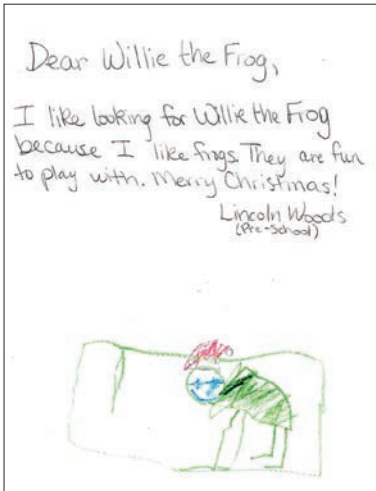 Dear Willie the Frog,
I like looking for Willie the Frog
because I like frogs. They are fun
to play with. Merry Christmas!
Lincoln Woods
(Pre-School)